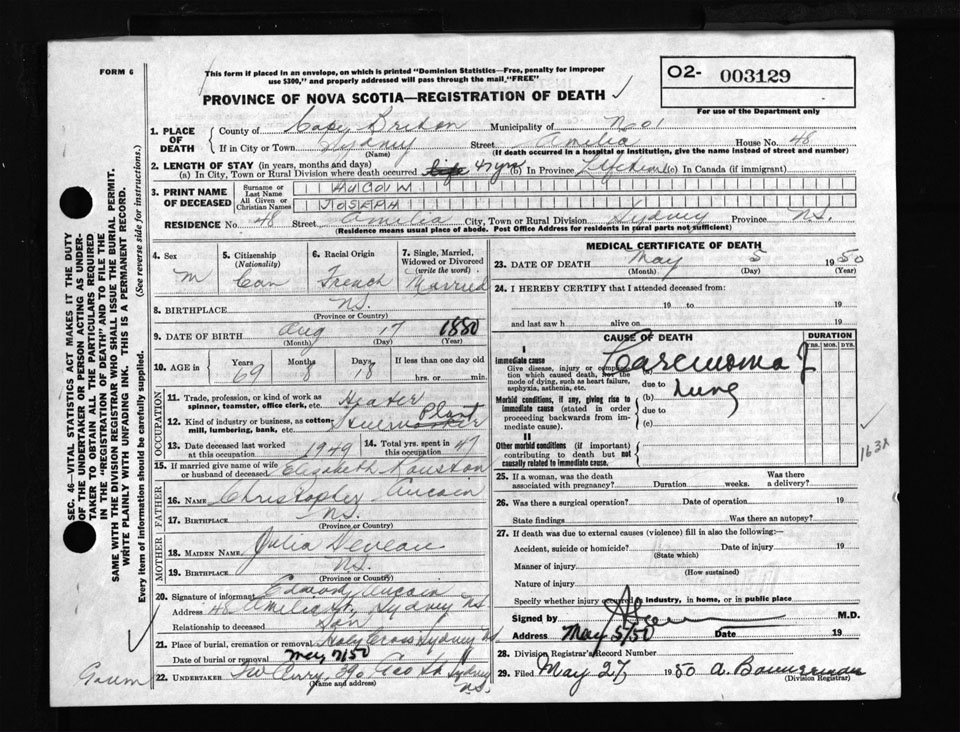 FORM 6
This form if placed in an envelope, on which is printed "Dominion Statistics—Free, penalty for improper
use $300," and properly addressed will pass through the mail "FREE"
O2- 003129
PROVINCE OF NOVA SCOTIA—REGISTRATION OF DEATH
For use of the Department only
1. PLACE OF DEATH
County of Cape Breton Municipality of
If in City or Town Sydney Street Amelia House No. 48
(Name) (If death occurred in a hospital or institution, give the name instead of street and number)
2. LENGTH OF STAY (in years, months and days)
(a) In City, Town or Rural Division where death occurred life 47 yrs (b) In Province Lifetime (c) In Canada (if immigrant)
3. PRINT NAME OF DECEASED
Surname or Last Name AUCOIN
All Given or Christian Names JOSEPH
RESIDENCE No. 48 Street Amelia City, Town or Rural Division Sydney Province N.S.
(Residence means usual place of abode. Post Office Address for residents in rural parts not sufficient)
4. Sex M
5. Citizenship (Nationality) Can
6. Racial Origin French
7. Single, Married, Widowed or Divorced (write the word) Married
8. BIRTHPLACE N.S.
(Province or Country)
9. DATE OF BIRTH Aug 17 1880
(Month) (Day) (Year)
10. AGE in Years 69 Months 8 Days 18 If less than one day old
hrs. or min.
11. Trade, profession, or kind of work as
spinner, teamster, office clerk, etc. Heater
12. Kind of industry or business, as cotten
mill, lumbering, bank, etc. Plant
13. Date deceased last worked
at this occupation 1949
14. Total yrs. spent in
this occupation 47
15. If married give name of wife
or husband of deceased Elizabeth
FATHER
16. NAME Christopher Aucoin
17. BIRTHPLACE N.S.
(Province or Country)
MOTHER
18. MAIDEN NAME Julia Deveau
19. BIRTHPLACE N.S.
(Province or Country)
20. Signature of informant Edmond Aucoin
Address 48 Amelia St. Sydney NS
Relationship to deceased Son
21. Place of burial, cremation or removal Holy Cross Sydney NS
Date of burial or removal May 7/50
22. UNDERTAKER Sydney N.S.
(Name and address)
MEDICAL CERTIFICATE OF DEATH
23. DATE OF DEATH May 5 1950
(Month) (Day) (Year)
24. I HEREBY CERTIFY that I attended deceased from:
19 to 19
and last saw h alive on 19
CAUSE OF DEATH
DURATION
YRS. MOS. DYS.
I
Immediate cause
Give disease, injury or complication
which caused death, not the
mode of dying, such as heart failure,
asphyxia, asthenia, etc.
(a) Carcinoma of
due to
(b) Lung
due to
(c)
Morbid conditions, if any, giving rise to
immediate cause (stated in order
proceeding backwards from immediate
cause).
II
Other morbid conditions (if important)
contributing to death but not
causally related to immediate cause.
163X
25. If a woman, was the death
associated with pregnancy? Duration weeks. Was there
a delivery?
26. Was there a surgical operation? Date of operation 19
State findings Was there an autopsy?
27. If death was due to external causes (violence) fill in also the following:—
Accident, suicide or homicide? Date of injury 19
(State which)
Manner of injury
(How sustained)
Nature of injury
Specify whether injury occurred in industry, in home, or in public place
Signed by M.D.
Address May 5/50 Date 19
28. Division Registrar's Record Number
29. Filed May 27 1950 A.
(Division Registrar)
SEC. 46—VITAL STATISTICS ACT MAKES IT THE DUTY
OF THE UNDERTAKER OR PERSON ACTING AS UNDERTAKER
TO OBTAIN ALL THE PARTICULARS REQUIRED
IN THE "REGISTRATION OF DEATH" AND TO FILE THE
SAME WITH THE DIVISION REGISTRAR WHO SHALL ISSUE THE BURIAL PERMIT.
WRITE PLAINLY WITH UNFADING INK. THIS IS A PERMANENT RECORD.
Every item of information should be carefully supplied. (See reverse side for instructions.)